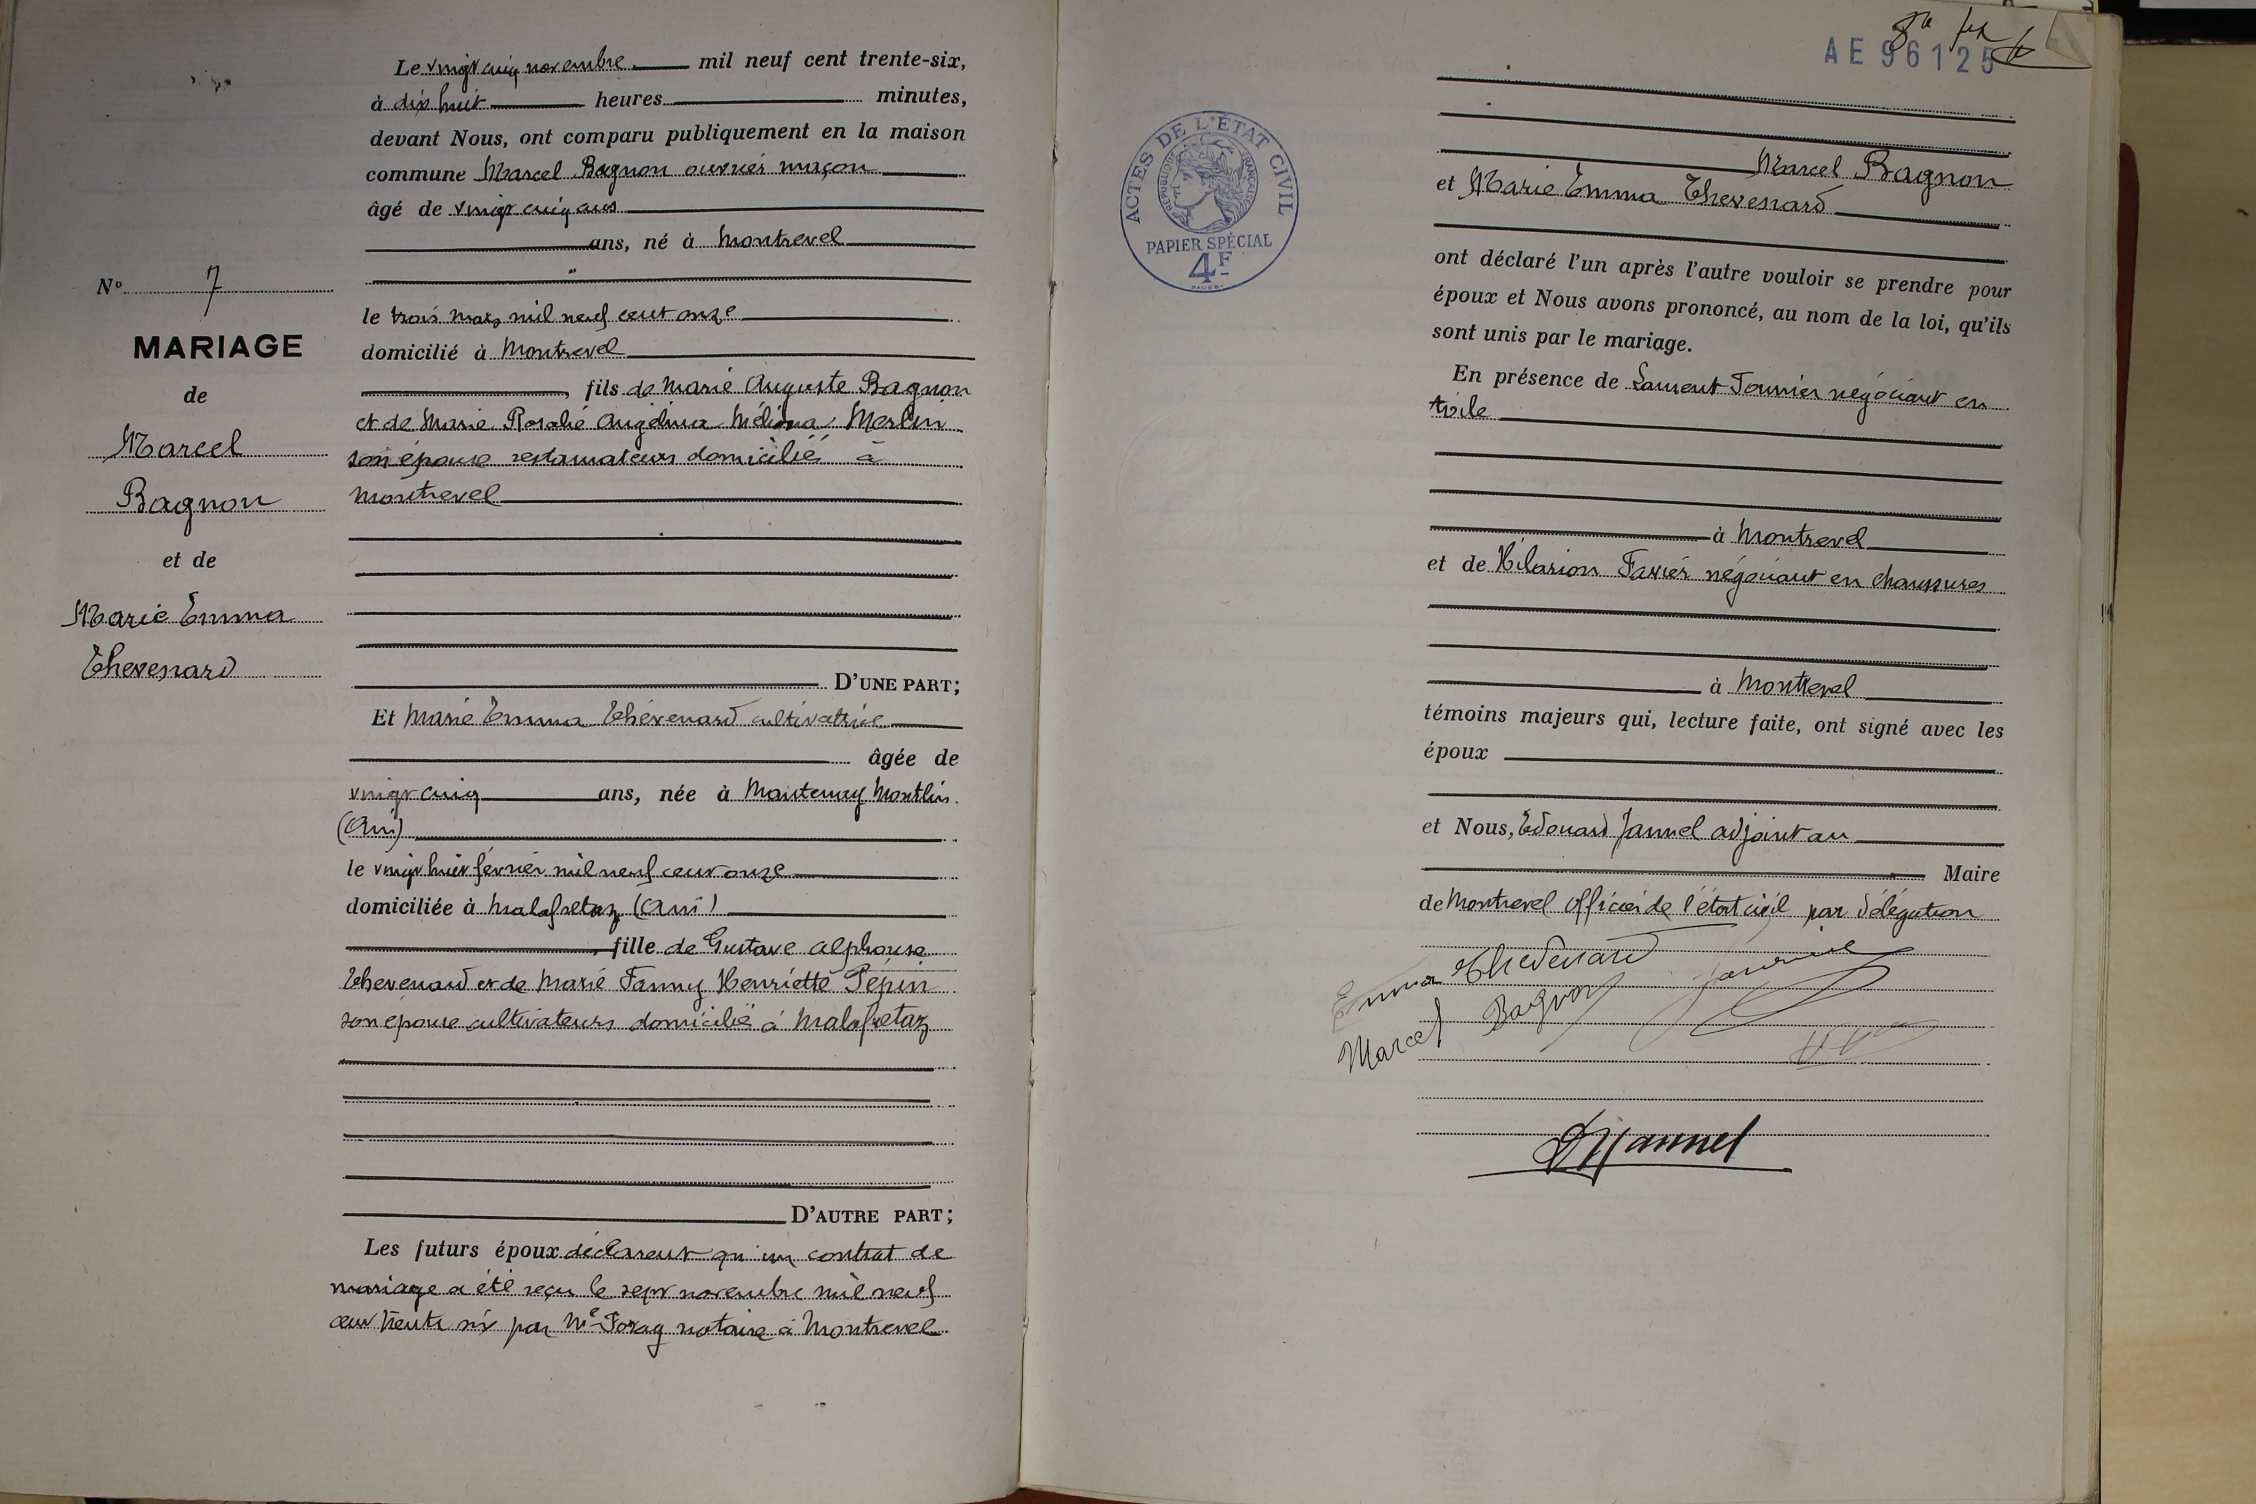 Le vingt cinq novembre mil neuf cent trente-six,
à dix huit heures minutes,
devant Nous, ont comparu publiquement en la maison
commune Marcel Bagnon ouvrier maçon
âgé de vingt cinq ans
ans, né à Montrevel
le trois mars mil neuf cent onze
domicilié à Montrevel
, fils de Marie Auguste Bagnon
et de Marie Rosalie Angelina Mélina Merlin
son épouse restaurateurs domicilié à
Montrevel
D'UNE PART;
Et Marie Emma Thévenard cultivatrice
âgée de
vingt cinq ans, née à Mantenay Montlin
(Ain)
le vingt huit février mil neuf cent onze
domiciliée à Malafretaz (Ain)
, fille de Gustave Alphonse
Thevenard et de Marie Fanny Henriette Pépin
son épouse cultivateurs domicilié à Malafretaz
D'AUTRE PART;
Les futurs époux déclarent qu'un contrat de
mariage a été reçu le sept novembre mil neuf
cent trente six par Me notaire à Montrevel
No 7
MARIAGE
de
Marcel
Bagnon
et de
Marie Emma
Thevenard
AE 96125
ACTES DE L'ÉTAT CIVIL
RÉPUBLIQUE FRANÇAISE
PAPIER SPÉCIAL
4F
Marcel Bagnon
et Marie Emma Thevenard
ont déclaré l'un après l'autre vouloir se prendre pour
époux et Nous avons prononcé, au nom de la loi, qu'ils
sont unis par le mariage.
En présence de Laurent Tournier négociant en
à Montrevel
et de Hilarion Favier négociant en chaussures
à Montrevel
témoins majeurs qui, lecture faite, ont signé avec les
époux
et Nous, Edouard Jannel adjoint au
Maire
de Montrevel officier de l'état civil par délégation
Emma Thevenard
Marcel Bagnon
Jannel